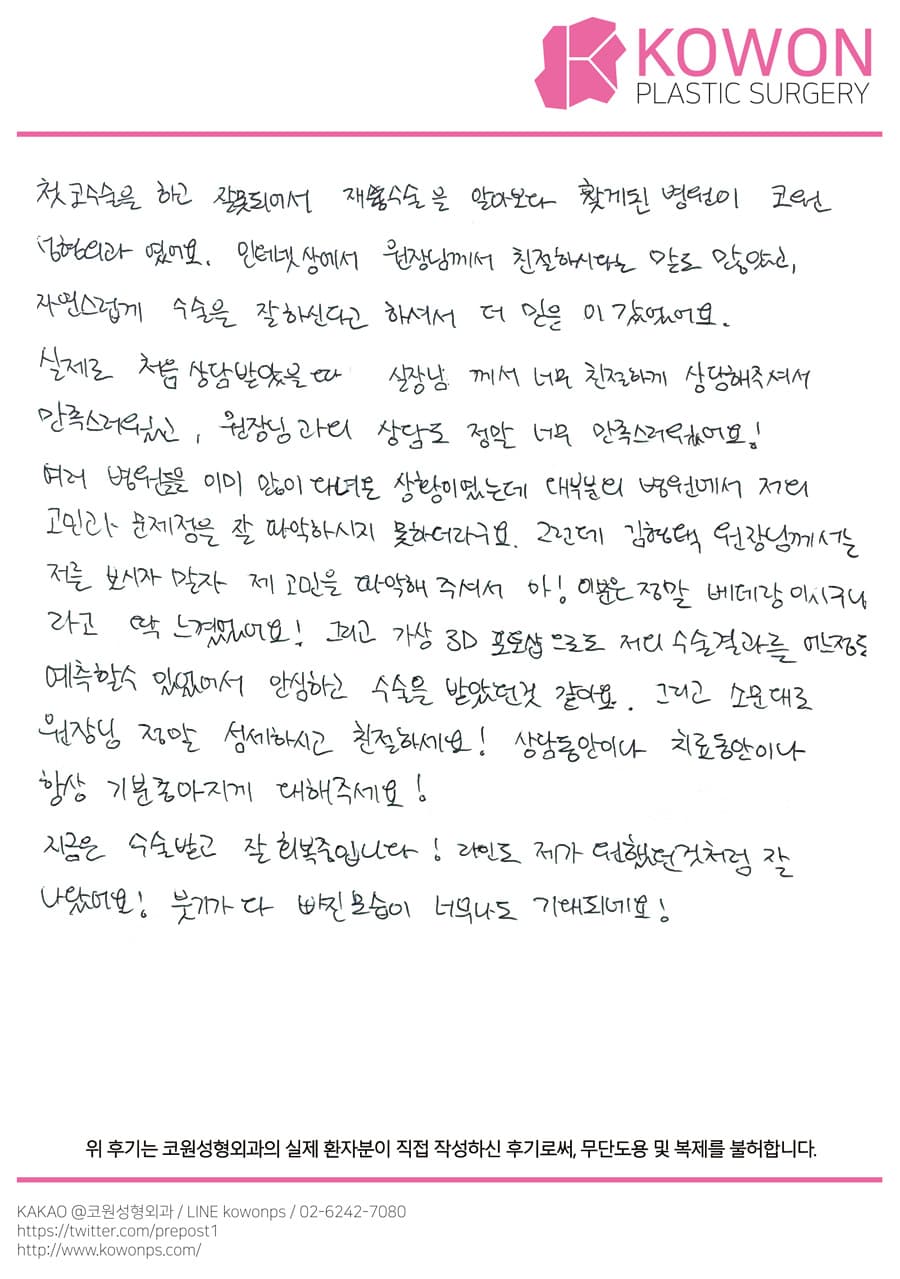 KOWON
PLASTIC SURGERY
첫 코수술을 하고 잘못되어서 재수술을 알아보다 찾게된 병원이 코원
성형외과 였어요. 인터넷상에서 원장님께서 친절하시다는 말도 많았고,
자연스럽게 수술을 잘하신다고 하셔서 더 믿음이 갔었어요.
실제로 처음 상담받았을때 실장님께서 너무 친절하게 상담해주셔서
만족스러웠고, 원장님과의 상담도 정말 너무 만족스러웠어요!
여러 병원들을 이미 많이 다녀온 상황이였는데 대부분의 병원에서 저의
고민과 문제점을 잘 파악하시지 못하더라구요. 그런데 김형택 원장님께서는
저를 보시자 말자 제 고민을 파악해 주셔서 아! 이분은 정말 베테랑이시구나
라고 딱 느꼈었어요! 그리고 가상 3D 포토샵으로도 저의 수술결과를 어느정도
예측할수 있었어서 안심하고 수술을 받았던것 같아요. 그리고 소문대로
원장님 정말 섬세하시고 친절하세요! 상담동안이나 치료동안이나
항상 기분좋아지게 대해주세요!
지금은 수술받고 잘 회복중입니다! 라인도 제가 원했던것처럼 잘
나왔어요! 붓기가 다 빠진모습이 너무나도 기대되네요!
위 후기는 코원성형외과의 실제 환자분이 직접 작성하신 후기로써, 무단도용 및 복제를 불허합니다.
KAKAO @코원성형외과 / LINE kowonps / 02-6242-7080
https://twitter.com/prepost1
http://www.kowonps.com/